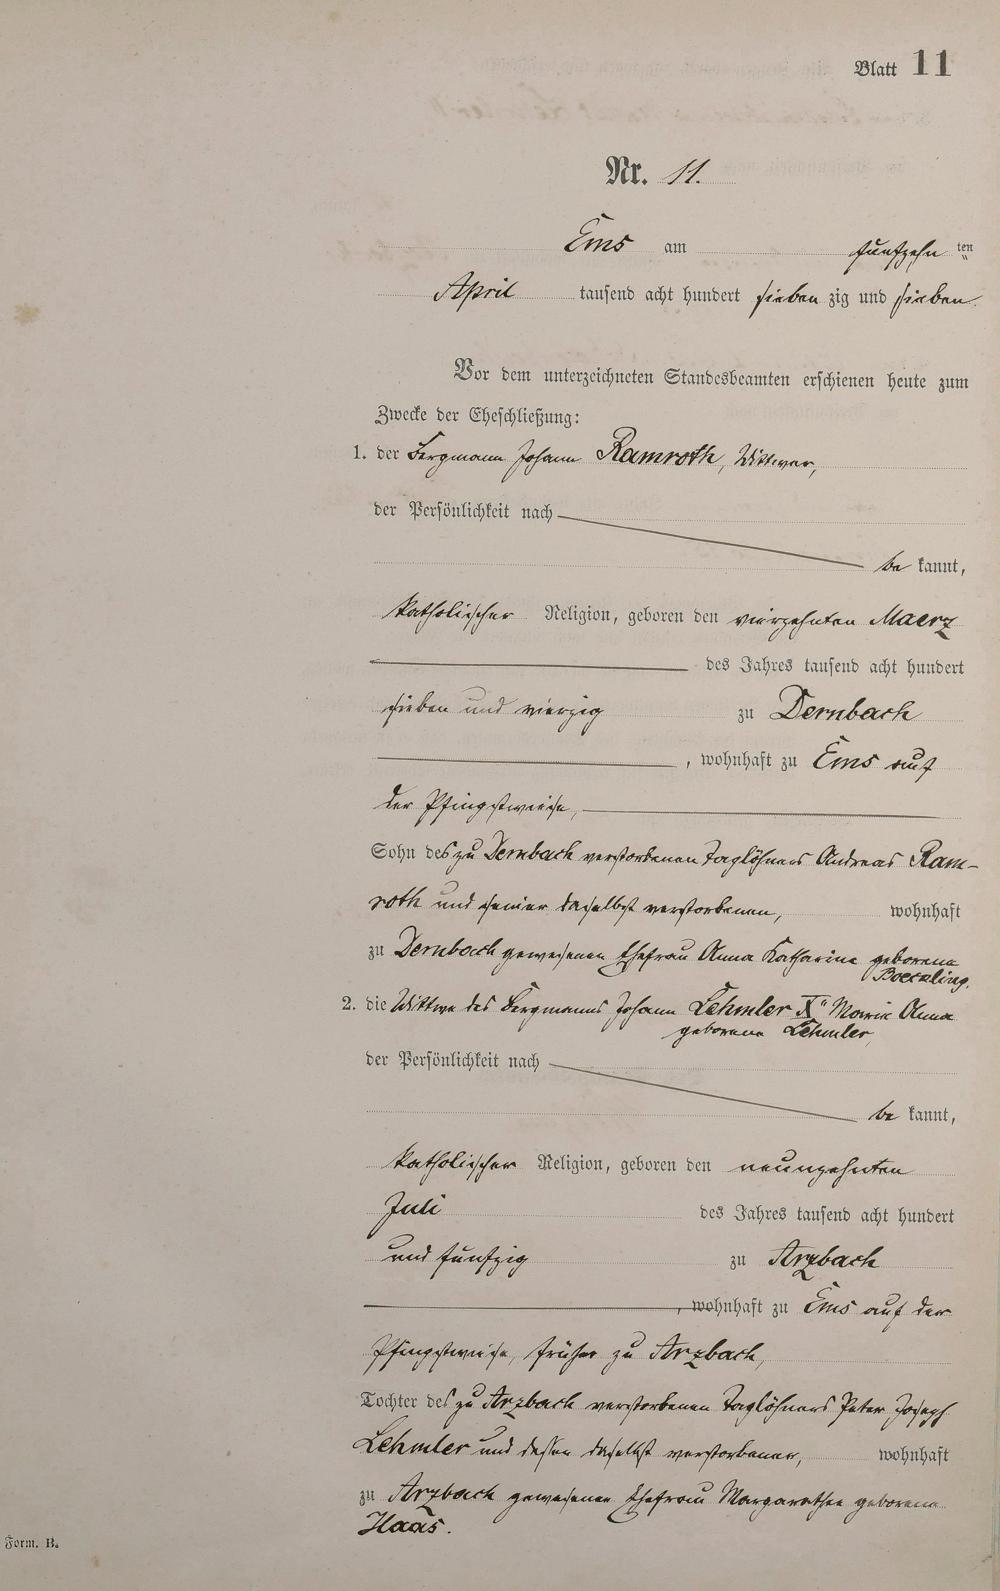 Blatt 11
Nr. 11.
Ems am fünfzehn ten
April tausend acht hundert sieben zig und sieben
Vor dem unterzeichneten Standesbeamten erschienen heute zum
Zwecke der Eheschließung:
1. der Bergmann Johann Ramroth, Wittwer,
der Persönlichkeit nach
be kannt,
katholischer Religion, geboren den vierzehnten Maerz
des Jahres tausend acht hundert
sieben und vierzig zu Dernbach
, wohnhaft zu Ems auf
der Pfingstweise,
Sohn des zu Dernbach verstorbenen Taglöhners Andreas Ram-
roth und seiner daselbst verstorbenen, wohnhaft
zu Dernbach gewesenen Ehefrau Anna Katharina geborene
2. die Wittwe des Bergmanns Johann Lehmler X" Maria Anna
geborene Lehmler,
der Persönlichkeit nach
be kannt,
katholischer Religion, geboren den neunzehnten
Juli des Jahres tausend acht hundert
und fünfzig zu Arzbach
, wohnhaft zu Ems auf der
Pfingstweise, früher zu Arzbach,
Tochter des zu Arzbach verstorbenen Taglöhners Peter Joseph
Lehmler und dessen daselbst verstorbener, wohnhaft
zu Arzbach gewesener Ehefrau Margarethe geborene
Haas.
Form. B.